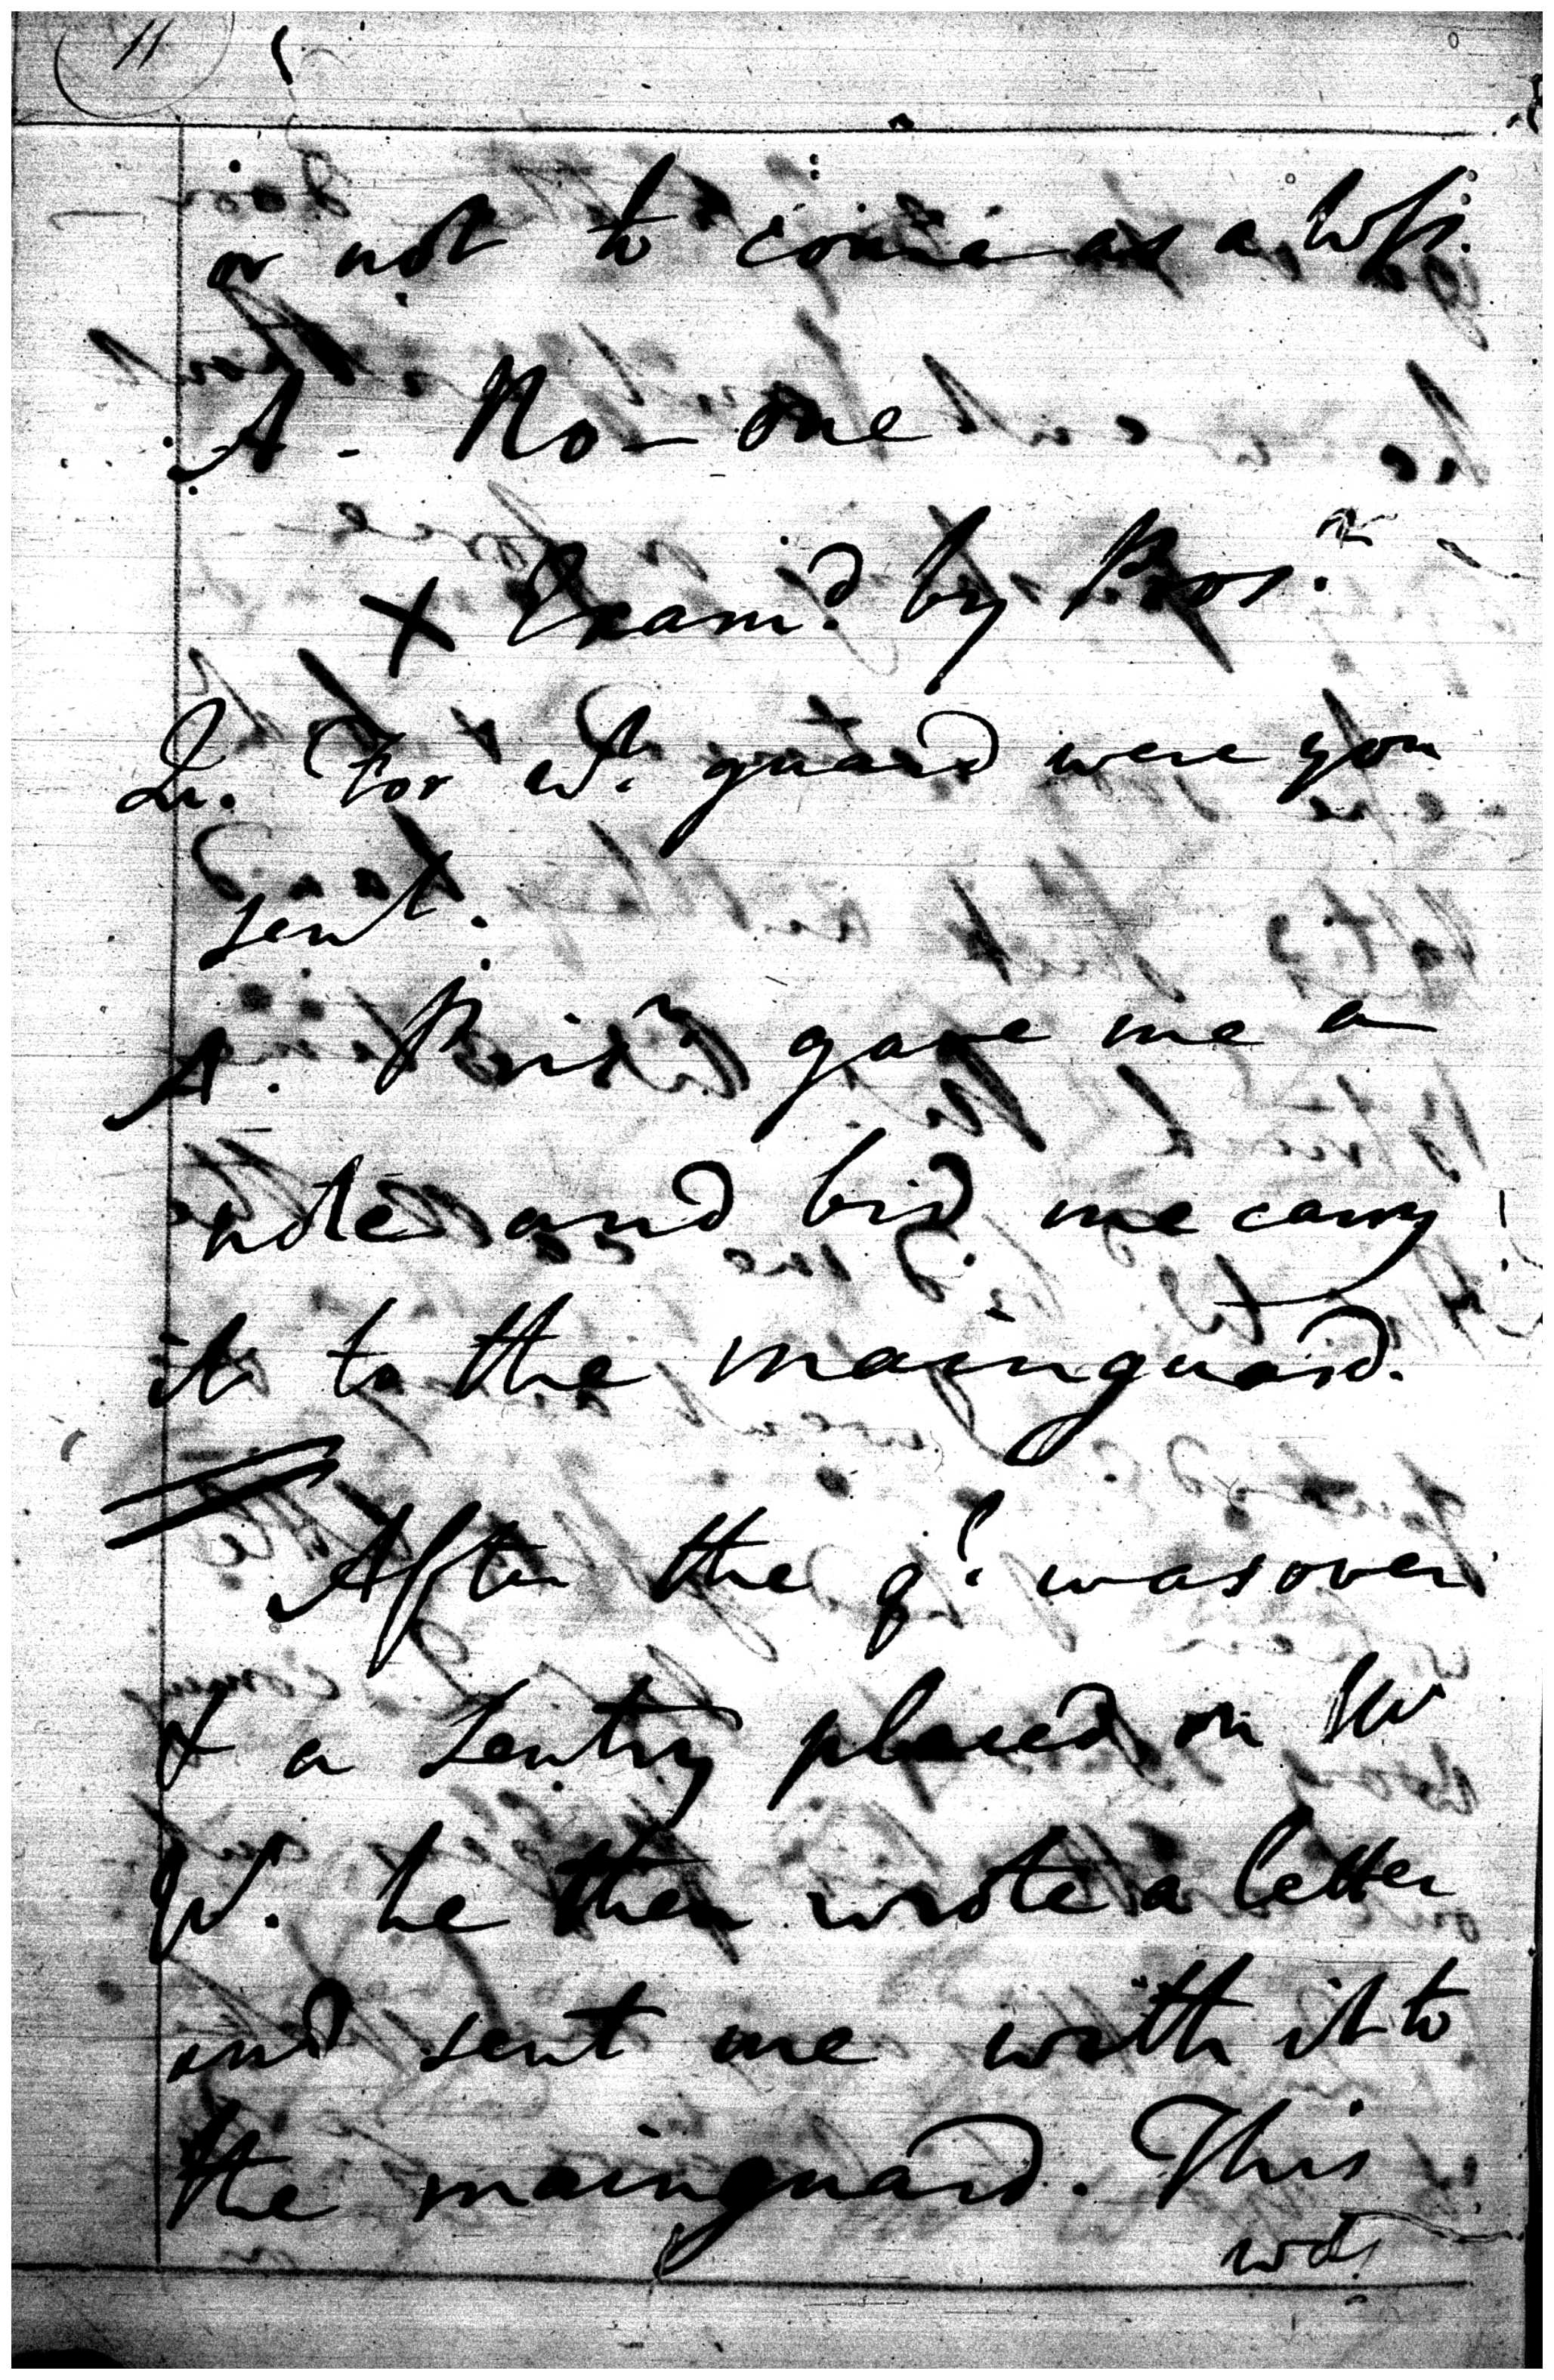 11
or not to come as a Wss.
A. No-one
X Exam.d by Pros.r
Qu. For wt. guard were you
sent.
A. Prisr gave me a
note and bid me carry
it to the mainguard.
After the ql. was over
& a Sentry placed on W
W. he then wrote a letter
and sent me with it to
the mainguard. This
was